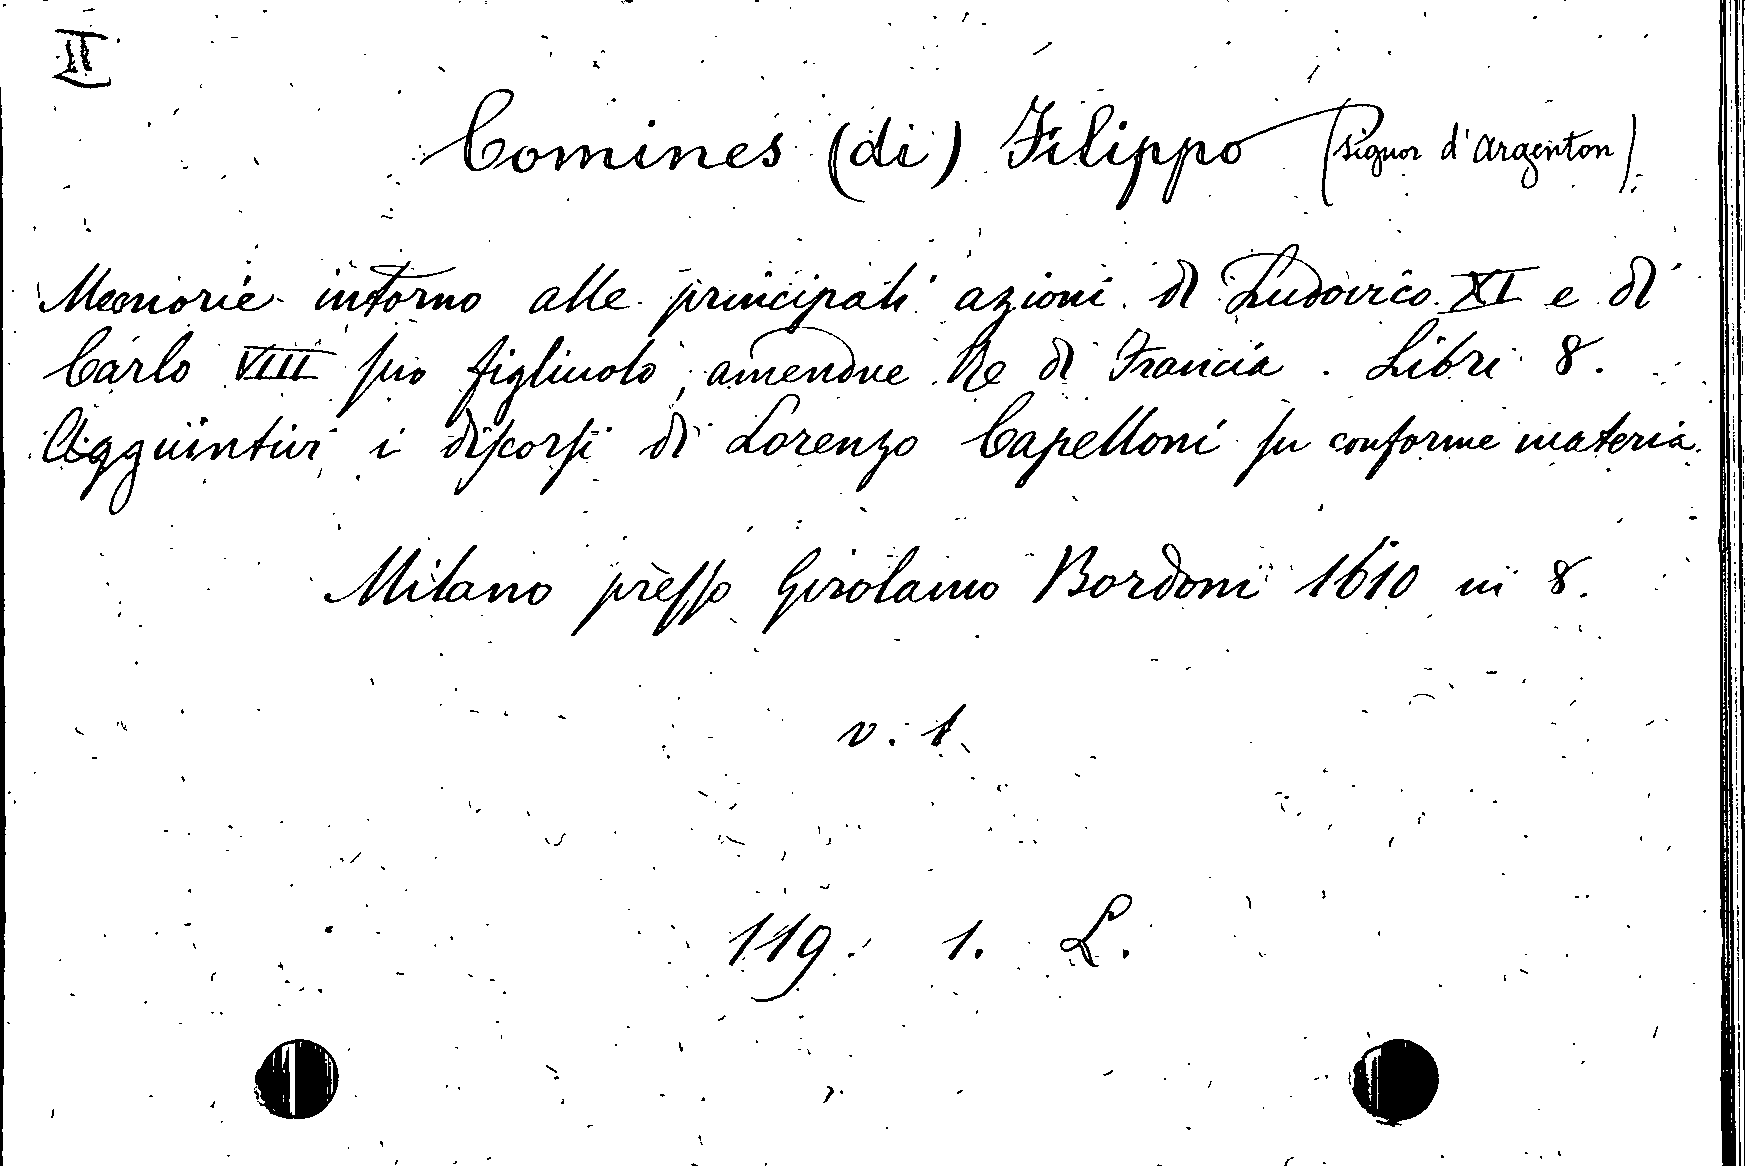 II
Comines (di) Filippo (signor d'Argenton)
Memorie intorno alle principali azioni di Ludovico XI e di
Carlo VIII suo figliuolo, amendue Re di Francia. Libri 8.
Aggiuntivi i discorsi di Lorenzo Capelloni su conforme materia.
Milano presso Girolamo Bordoni 1610 in 8.
v. 1
119. 1. L.